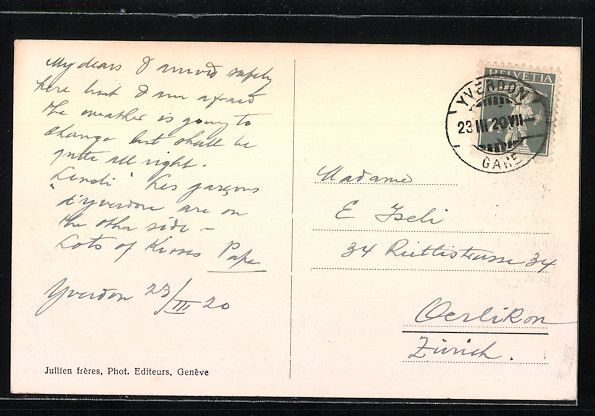 My dears I arrived safely
here but I am afraid
the weather is going to
change but shall be
quite all right.
"Lendi" Les garçons
d'Yverdon are on
the other side –
Lots of Kisses Papa
Yverdon 23/III 20
Jullien frères, Phot. Editeurs, Genève
HELVETIA
YVERDON
23 III 20 VII
GARE
Madame
E Iseli
34 Rüttistrasse 34
Oerlikon
Zürich.